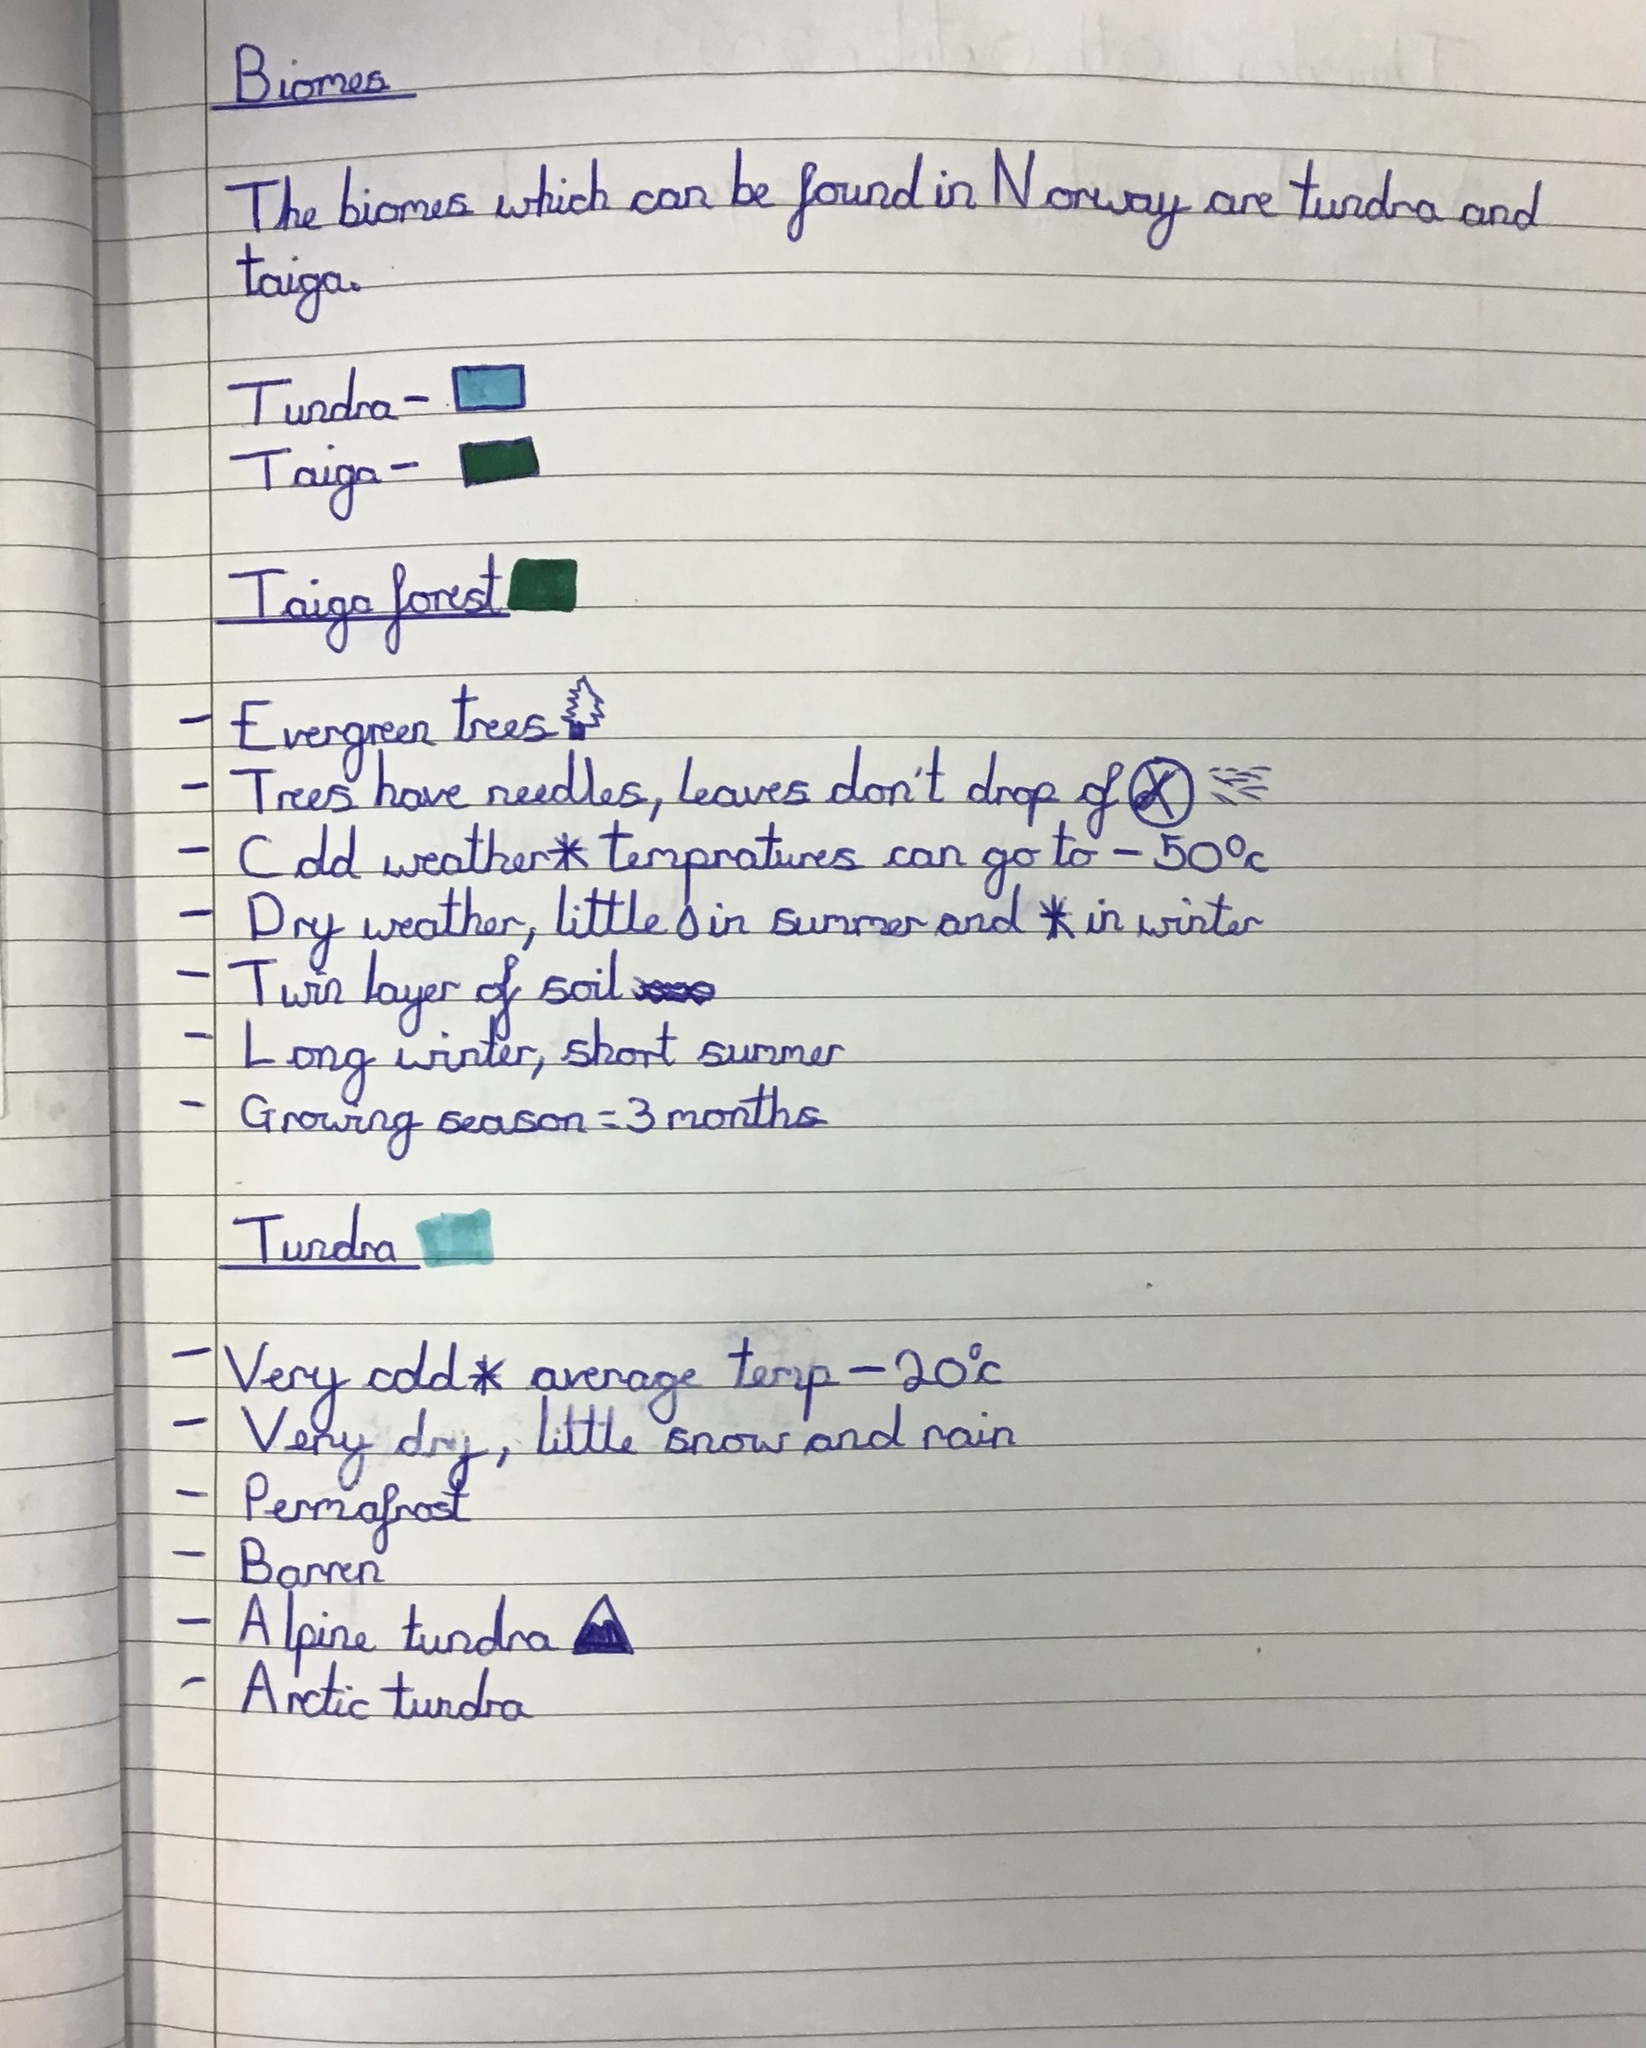 Biomes
The biomes which can be found in Norway are tundra and
taiga.
Tundra -
Taiga -
Taiga forest
- Evergreen trees
- Trees have needles, leaves don't drop of
- Cold weather * tempratures can go to - 50°c
- Dry weather, little in summer and * in winter
- Twin layer of soil
- Long winter, short summer
- Growing season = 3 months
Tundra
- Very cold * average temp - 20°c
- Very dry, little snow and rain
- Permafrost
- Barren
- Alpine tundra
- Arctic tundra